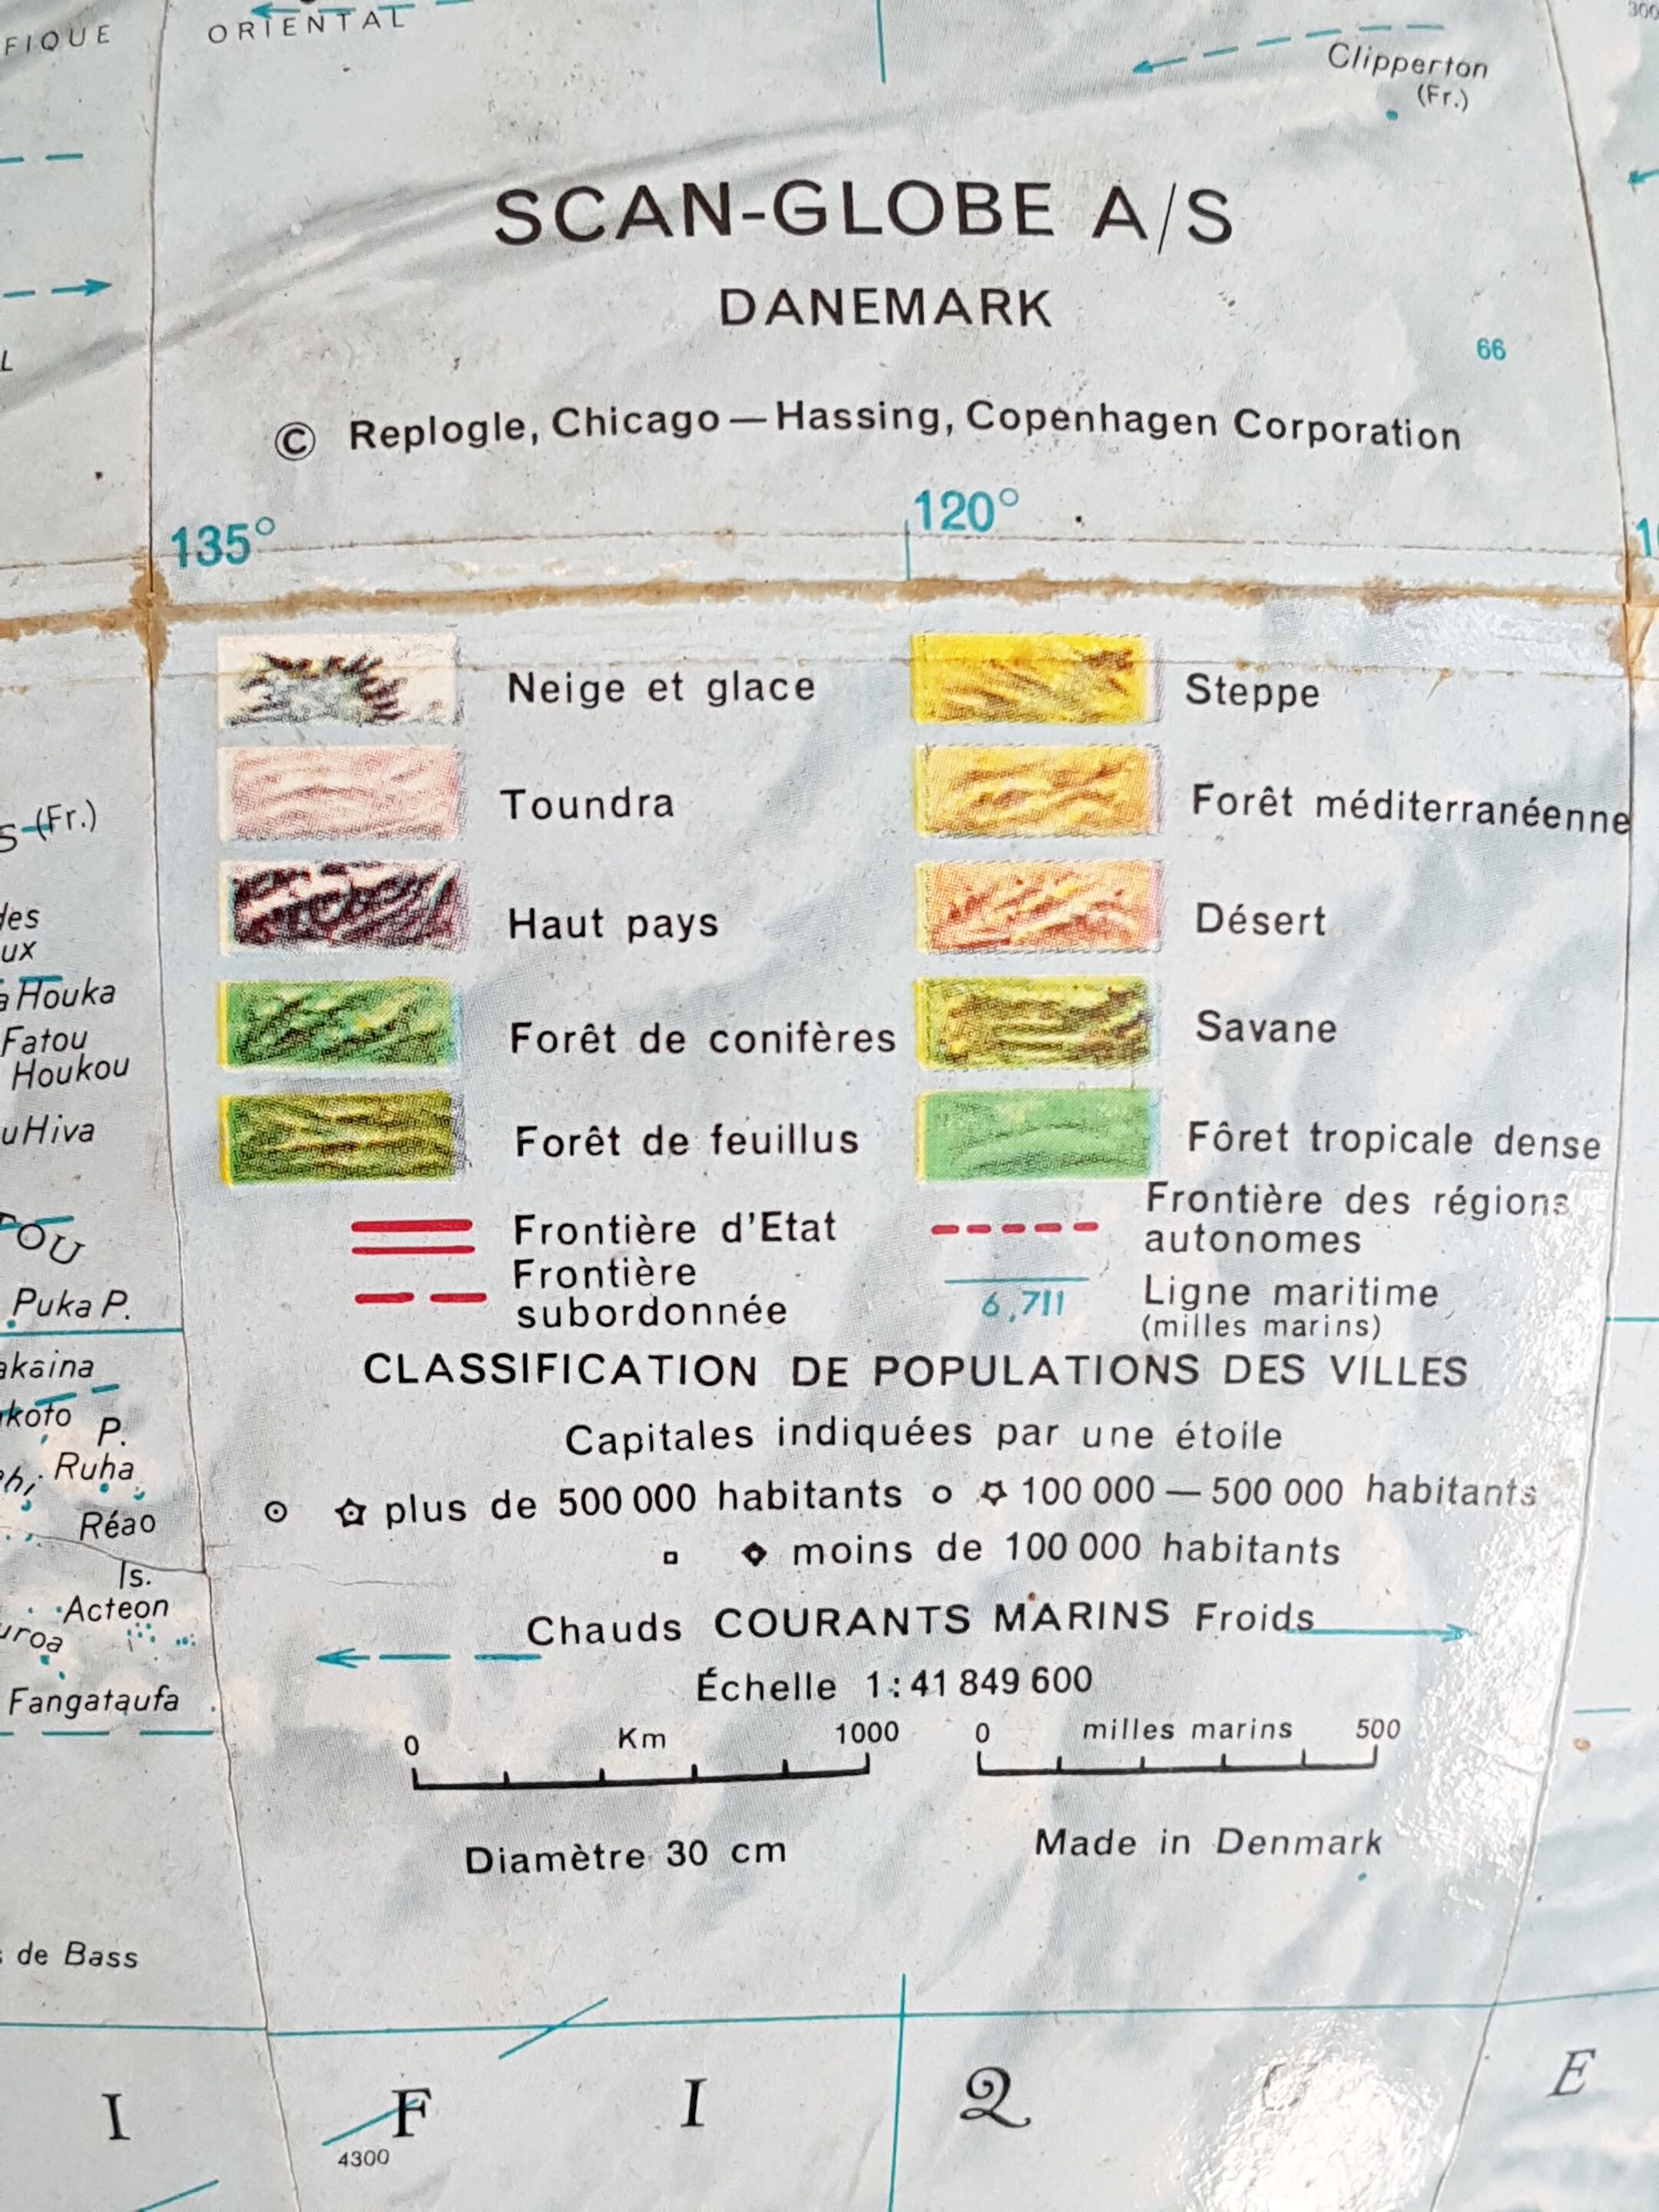 FIQUE
ORIENTAL
Clipperton
(Fr.)
SCAN-GLOBE A/S
DANEMARK
66
© Replogle, Chicago — Hassing, Copenhagen Corporation
135°
120°
Neige et glace
Steppe
Toundra
Forêt méditerranéenne
(Fr.)
Haut pays
Désert
Houka
Fatou
Houkou
Forêt de conifères
Savane
Hiva
Forêt de feuillus
Fôret tropicale dense
Frontière d'Etat
Frontière des régions
autonomes
Frontière
subordonnée
6,711
Ligne maritime
(milles marins)
OU
Puka P.
CLASSIFICATION DE POPULATIONS DES VILLES
akaina
Capitales indiquées par une étoile
koto
P.
Ruha
plus de 500 000 habitants
100 000 — 500 000 habitants
Réao
moins de 100 000 habitants
Is.
Acteon
uroa
Chauds COURANTS MARINS Froids
Échelle 1 : 41 849 600
Fangataufa
0 Km 1000
0 milles marins 500
Diamètre 30 cm
Made in Denmark
de Bass
I F I Q E
4300